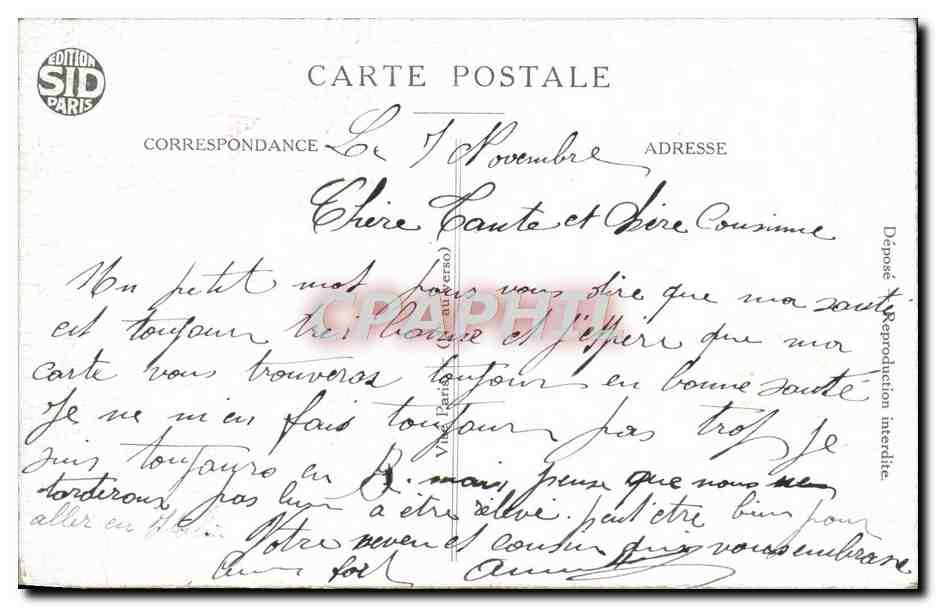 EDITION
SID
PARIS
CARTE POSTALE
CORRESPONDANCE
ADRESSE
Le 7 Novembre
Chère Tante et Chère Cousinne
Un petit mot pour vous dire que ma santé
est toujour trei bonne et j'esperè que ma
carte vous trouveras toujour en bonne santé
Je ne m'en fais toujour pas trop je
suis toujours en R. mais pense que nous ne
tarderoux pas bien a être relevé. peut etre bien pour
aller en Itali
Votre neveu et cousin qui vous embrasse
fort
Ville Paris (au verso)
Déposé Reproduction interdite.
CPAPHIL